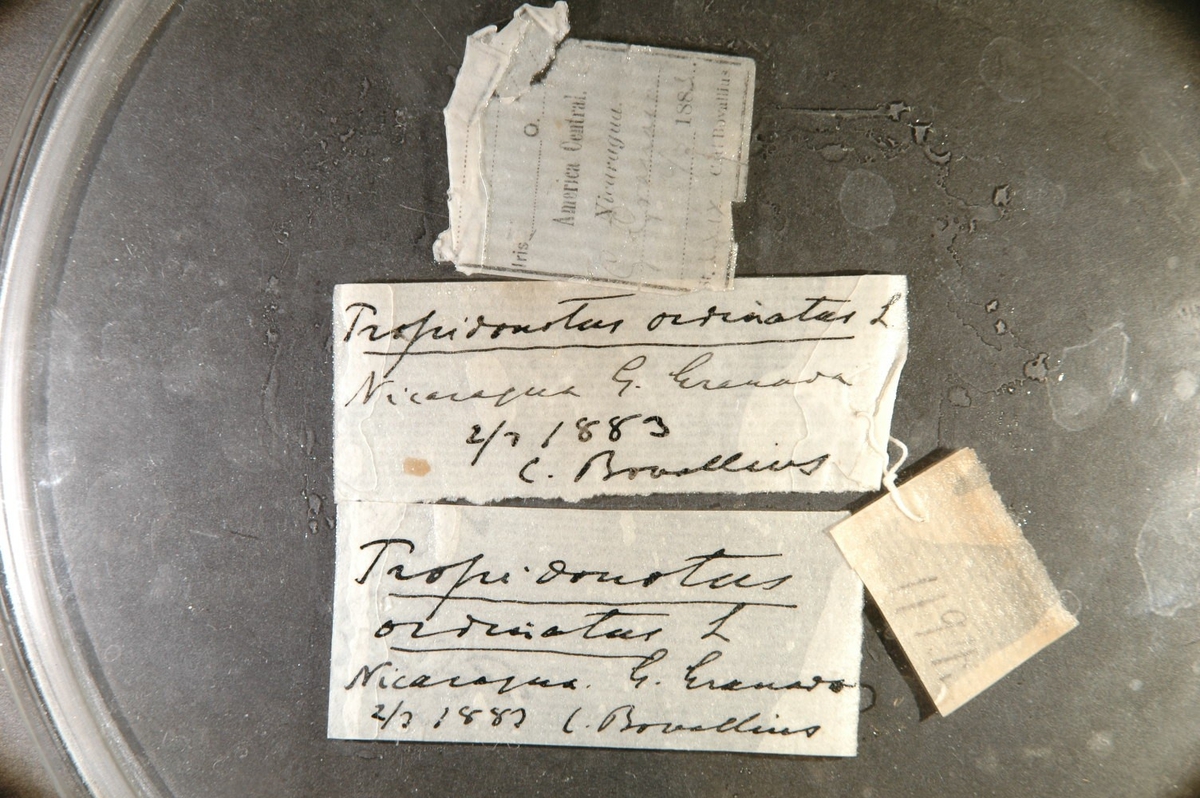 Iris O.
America Central.
Nicaragua.
188
Bovallius
Tropidonotus ordinatus L
Nicaragua G. Granada
2/7 1883
C. Bovallius
Tropidonotus
ordinatus L
Nicaragua. G. Granada
2/7 1883 C. Bovallius